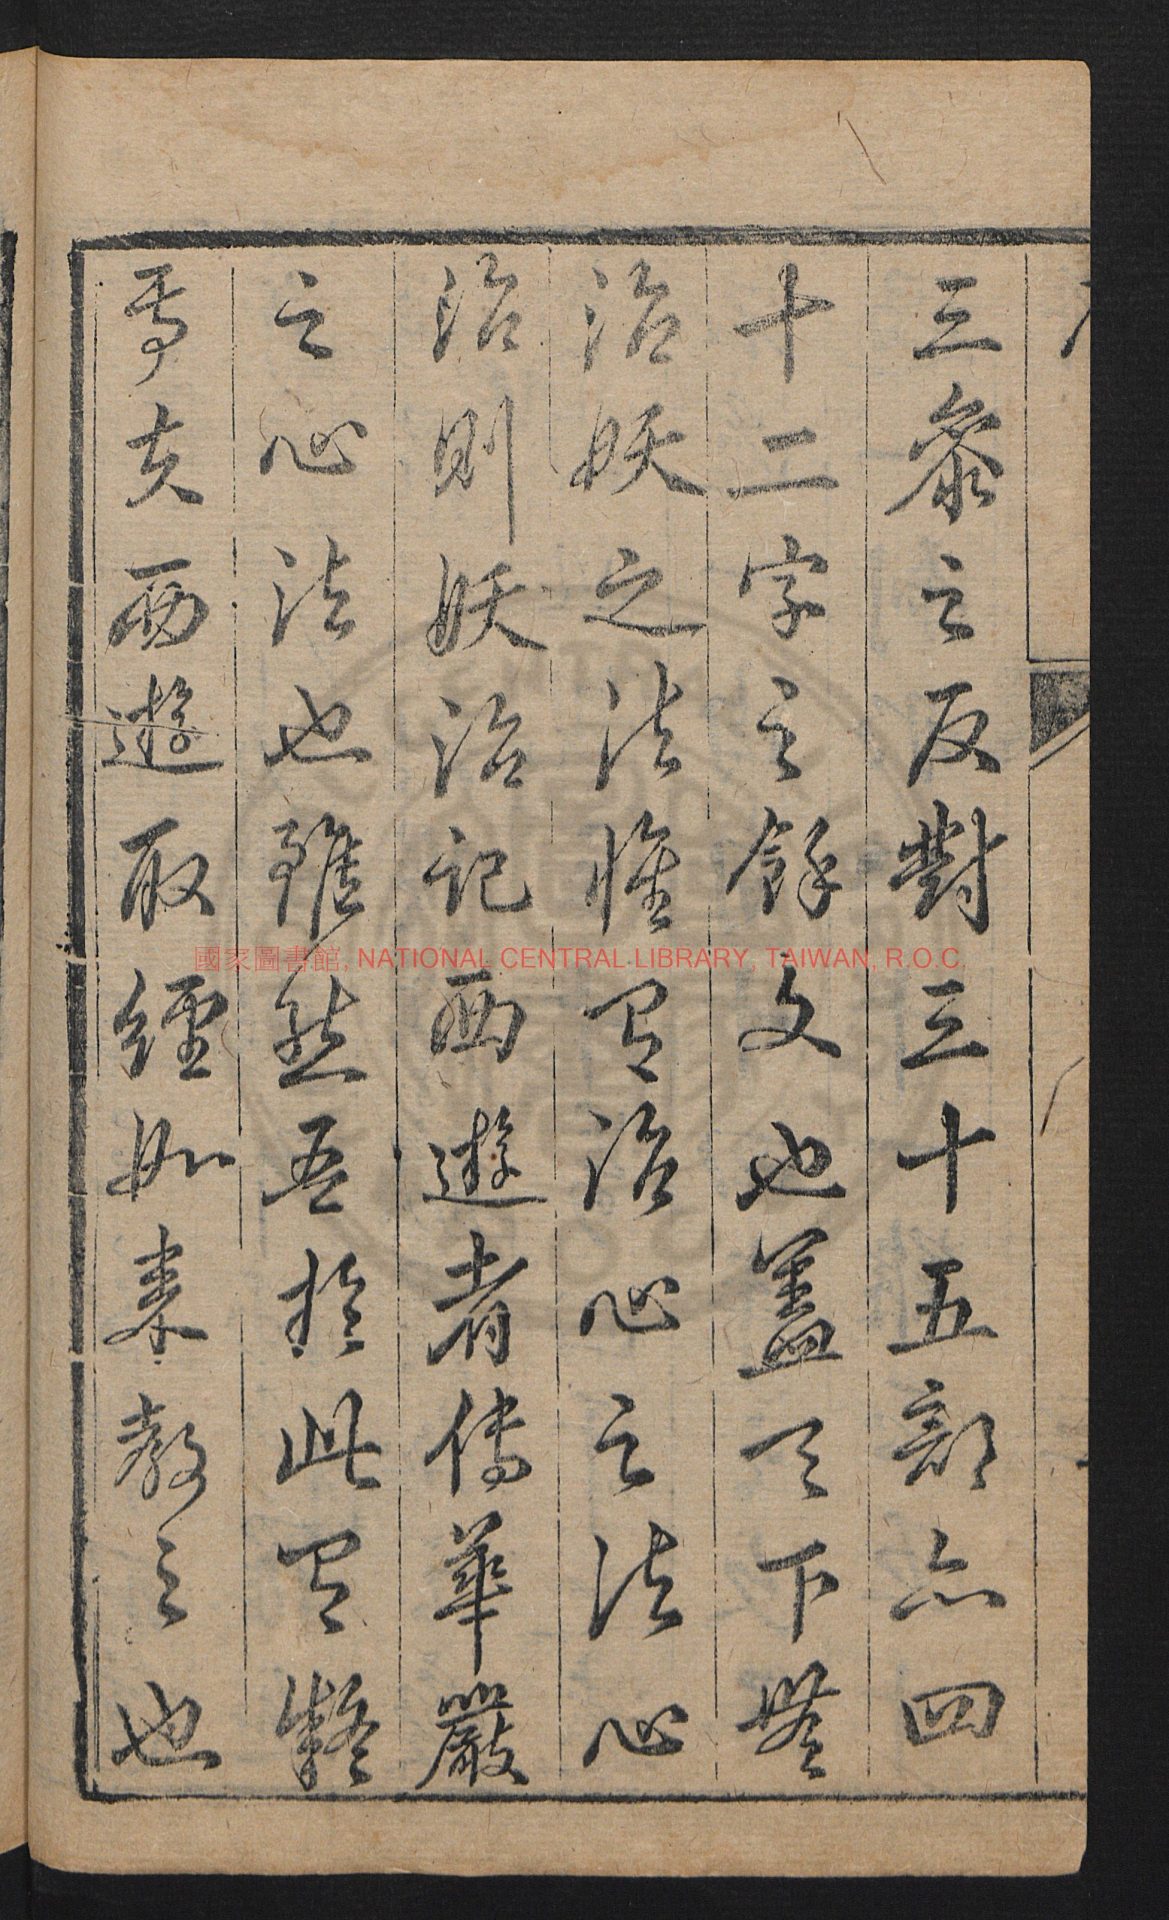 三藏之反對三十五部亦四
十二字之餘文也蓋天下無
治妖之法惟有治心之法心
治則妖治記西遊者傳華嚴
之心法也雖然吾於此有疑
焉夫西遊取經如來教之也
國家圖書館, NATIONAL CENTRAL LIBRARY, TAIWAN, R.O.C.